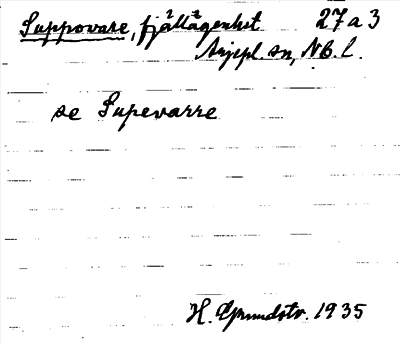 Suppovare, fjällägenhet 27a3
Arjepl. sn, NB. l.
se Supevarre
H. Grundstr. 1935